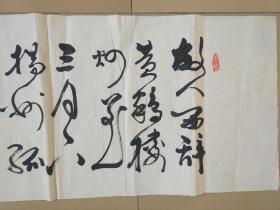 故人西辞
黄鶴樓
烟花
三月下
揚州孤